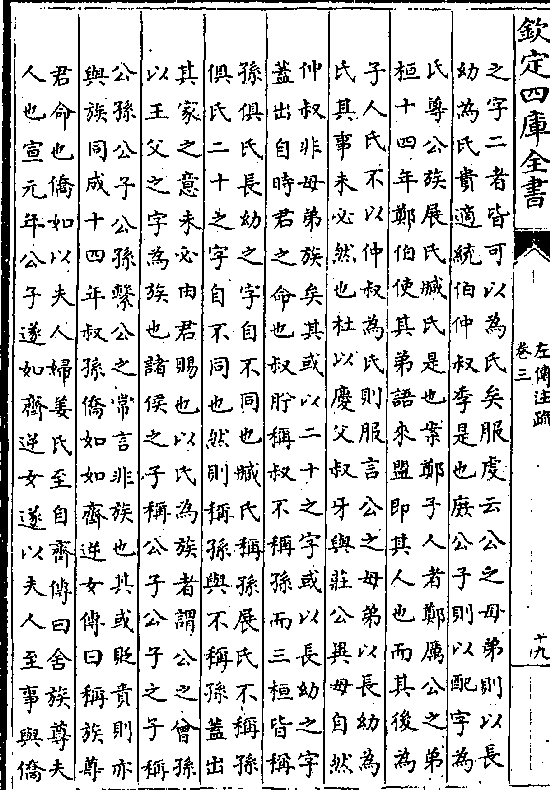 欽定四庫全書
左傳注疏
卷三
十九
之字二者皆可以為氏矣服虔云公之母弟則以長
幼為氏貴適統伯仲叔季是也庶公子則以配字為
氏尊公族展氏臧氏是也案鄭子人者鄭厲公之弟
桓十四年鄭伯使其弟語來盟即其人也而其後為
子人氏不以仲叔為氏則服言公之母弟以長幼為
氏其事未必然也杜以慶父叔牙與莊公異母自然
仲叔非母弟族矣其或以二十之字或以長幼之字
蓋出自時君之命也叔肸稱叔不稱孫而三桓皆稱
孫俱氏長幼之字自不同也臧氏稱孫展氏不稱孫
俱氏二十之字自不同也然則稱孫與不稱孫蓋出
其家之意未必由君賜也以氏為族者謂公之曾孫
以王父之字為族也諸侯之子稱公子公子之子稱
公孫公子公孫繫公之常言非族也其或貶責則亦
與族同成十四年叔孫僑如如齊逆女傳曰稱族尊
君命也僑如以夫人婦姜氏至自齊傳曰舍族尊夫
人也宣元年公子遂如齊逆女遂以夫人至事與僑